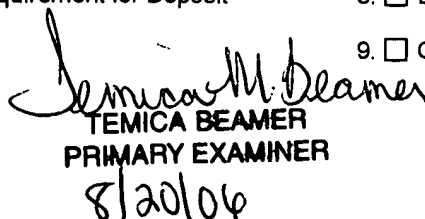 quirement for Deposit
8.
9.
Temica M. Beamer
TEMICA BEAMER
PRIMARY EXAMINER
8/20/06